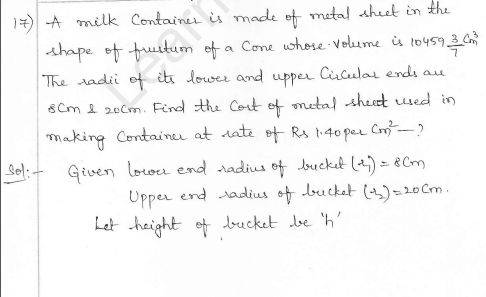 17) A milk Container is made of metal sheet in the
shape of frustum of a Cone whose Volume is 10459 3/7 Cm³
The radii of its lower and upper Circular ends are
8Cm & 20Cm. Find the Cost of metal sheet used in
making Container at rate of Rs 1.40 per Cm² — ?
Sol:- Given lower end radius of bucket (r₁) = 8Cm
Upper end radius of bucket (r₂) = 20Cm.
Let height of bucket be 'h'
Learn